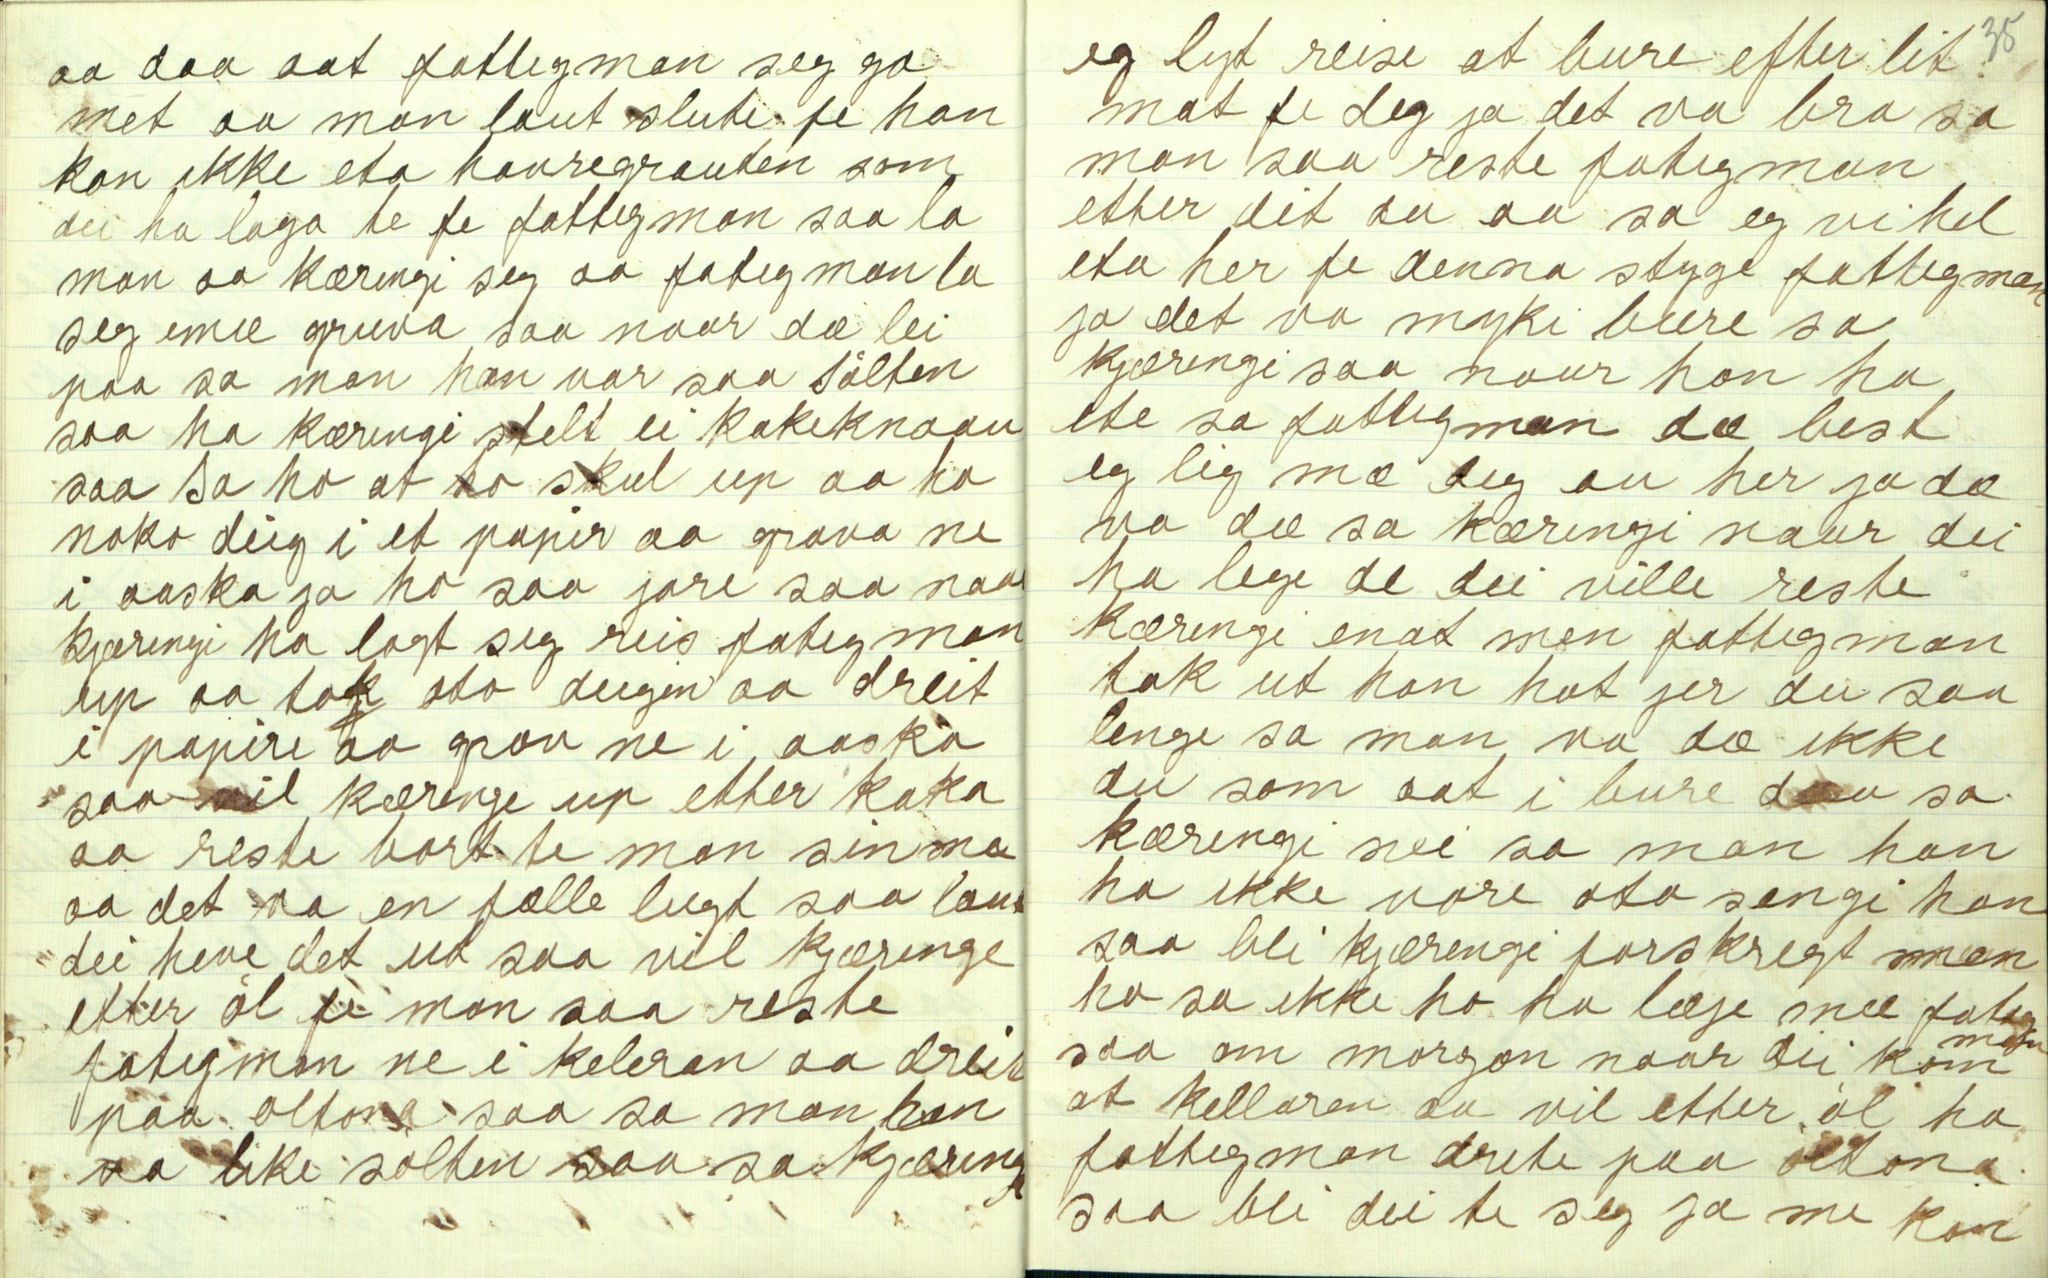 aa daa aat fattegman seg ga
met aa man laut slute fe han
kan ikke eta havregrauten som
dei ha laga te fe fattegman saa la
man aa kæringi seg aa fategman la
seg imæ gruva saa naar dæ lei
paa sa man han var saa sölten
saa ha kæringi stelt ei kakeknaau
saa sa ho at ho skul up aa ha
noko deig i et papir aa grava ne
i aaska ja ho saa jore saa naar
kjæringi ha lagt seg reis fategman
up aa tok ato deigin aa dreit
i papire aa grov ne i aaska
saa vil kæringe up etter kaka
aa reste bort te man sin mæ
aa det va en fælle lugt saa laut
dei heve det ut saa vil kjæringe
etter öl fe man saa reste
fategman ne i keleran aa dreit
paa oltona saa sa man han
va like solten saa sa kjæringi
35
eg lyt reise at bure efter lit
mat fe deg ja det va bra sa
man saa reste fategman
etter dit au aa sa eg vi hel
eta her fe denna styge fattegman
ja det va myki bere sa
kjæringi saa naar hon ha
ete sa fattegman dæ best
eg lig mæ deg au her ja dæ
va dæ sa kæringi naar dei
ha lege de dei ville reste
kæringi enat men fattegman
tok ut han hot jer du saa
lenge sa man va dæ ikke
du som aat i bure sa
kæringi nei sa man han
ha ikke vore ato sengi han
saa bli kjæringi forskregt men
ho sa ikke ho ha læje mæ fateg
man
saa om morgon naar dei kom
at kellaren aa vil etter öl ha
fattegman drete paa öltona
saa bli dei te seg ja me kan